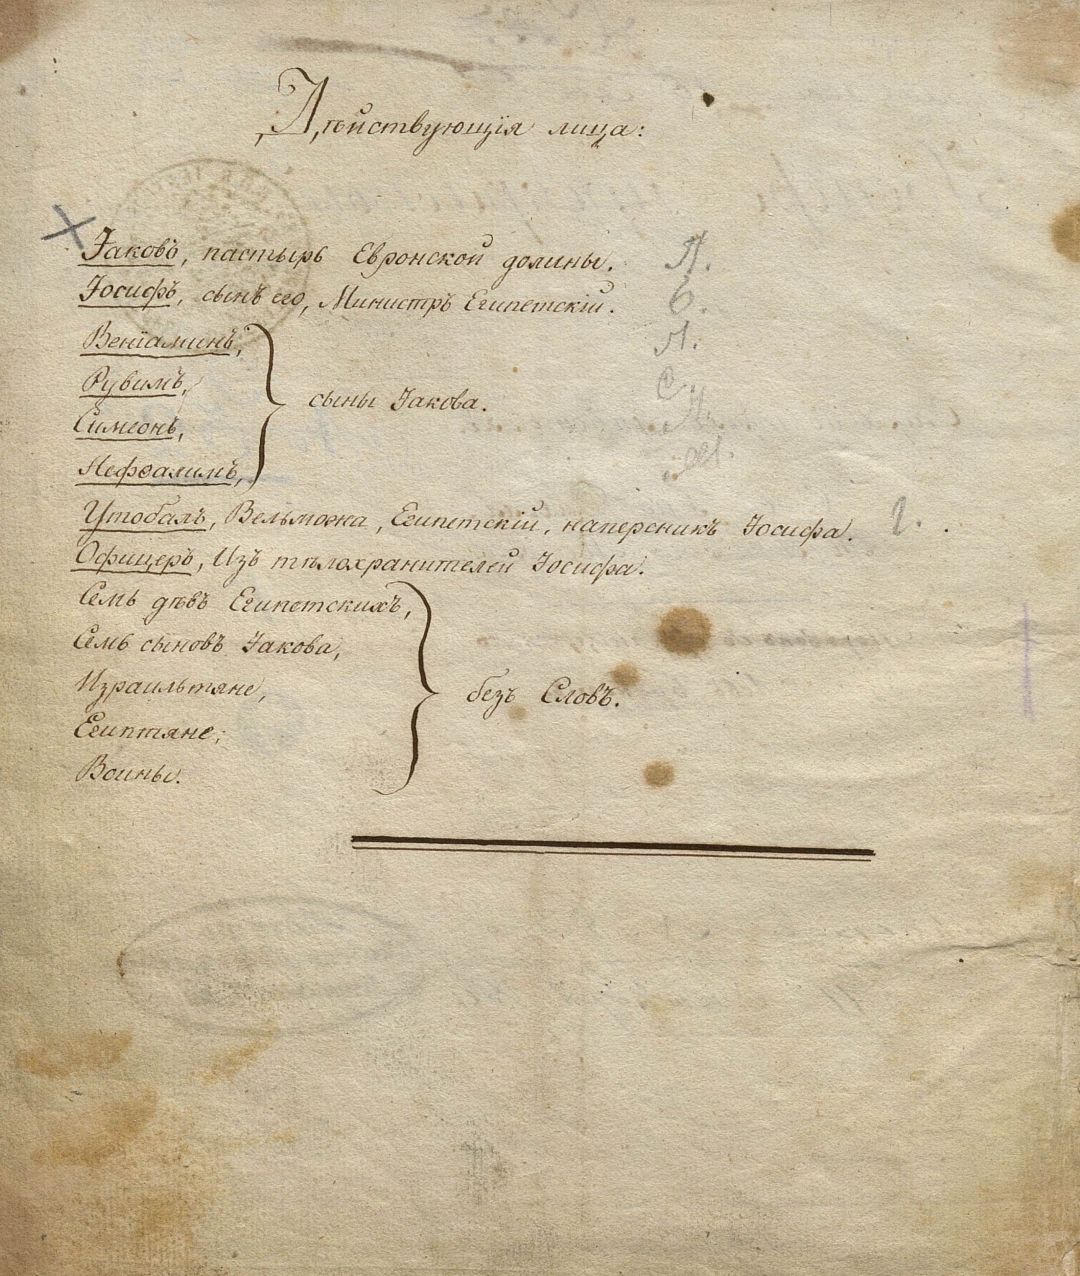 Дѣйствующія лица:
Іаковъ, пастырь Евронской долины. Я.
Іосифъ, сынъ его, Министръ Египетскій. С.
Веніаминъ, Я.
Рувимъ, С.
сыны Іакова.
Симеонъ,
Нефѳалимъ,
Утобалъ, Вельможа, Египетскій, наперсникъ Іосифа.
Офицеръ, Изъ тѣлохранителей Іосифа.
Семь дѣвъ Египетскихъ,
Семь сыновъ Іакова,
Израильтяне,
безъ Словъ.
Египтяне;
Воины.